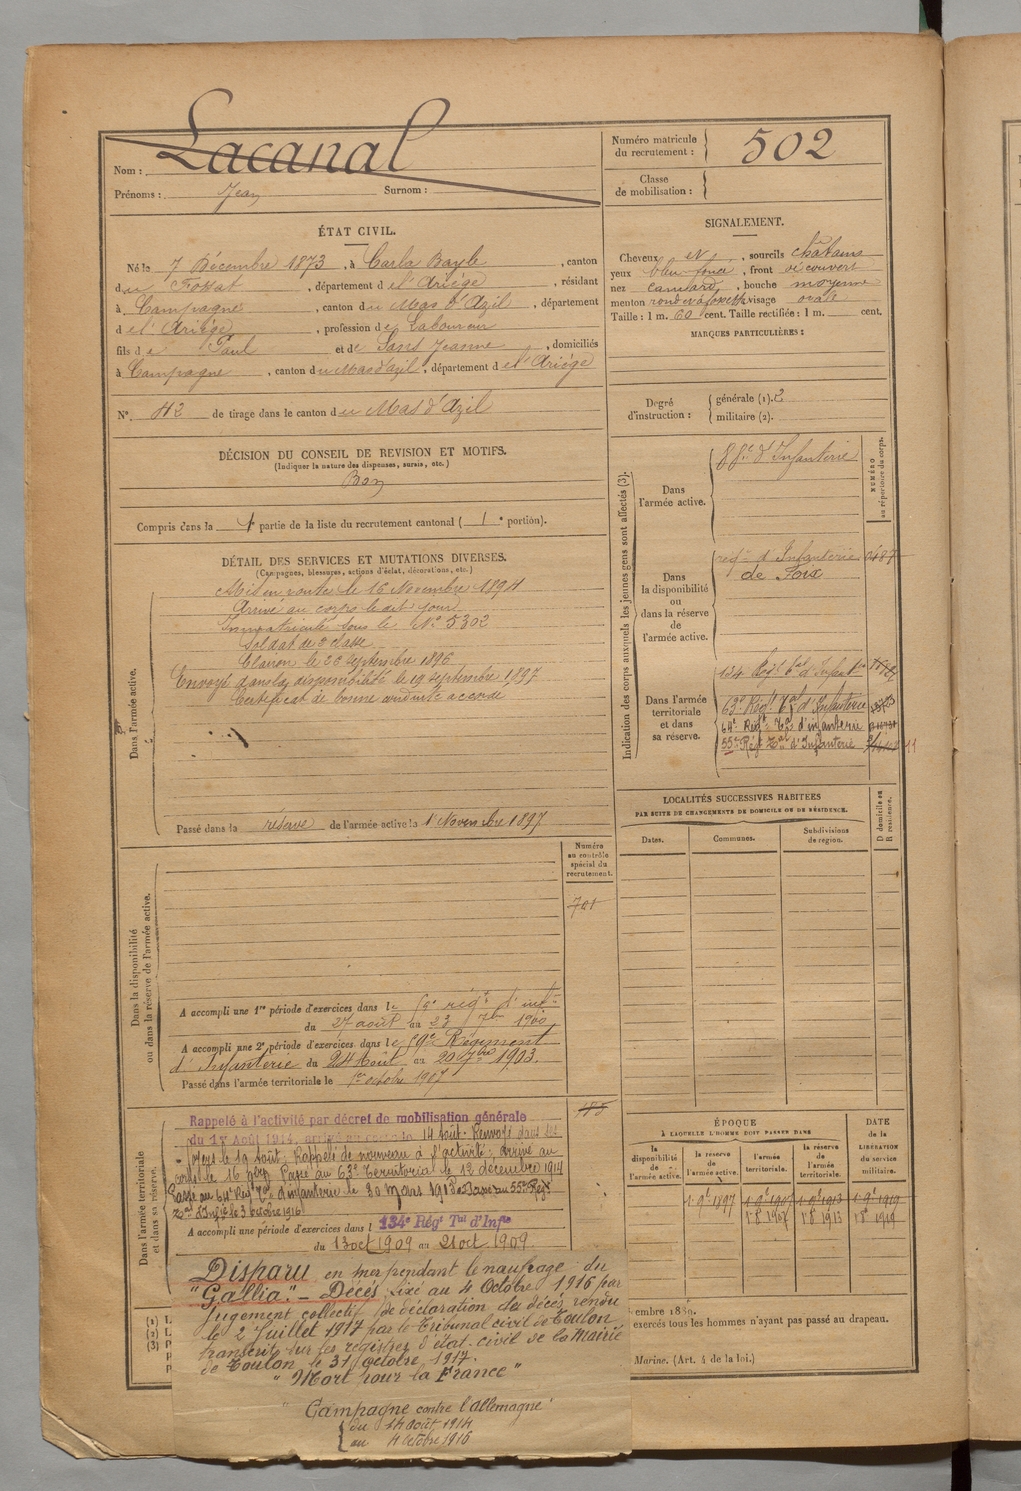 Nom : Lacanal
Prénoms : Jean Surnom :
Numéro matricule du recrutement : 502
Classe de mobilisation :
ÉTAT CIVIL.
Né le 7 Décembre 1873, à Carla Bayle, canton
du Fossat, département de l'Ariége, résidant
à Campagne, canton du Mas d'Azil, département
de l'Ariége, profession de Laboureur
fils de Paul et de Sans Jeanne, domiciliés
à Campagne, canton du Mas d'azil, département de l'Ariége
N° 42 de tirage dans le canton du Mas d'Azil
SIGNALEMENT.
Cheveux et, sourcils châtains
yeux bleu foncé, front découvert
nez camard, bouche moyenne
menton rond et à fossette visage ovale
Taille : 1 m. 60 cent. Taille rectifiée : 1 m. cent.
MARQUES PARTICULIÈRES :
Degré d'instruction : générale (1). 2
militaire (2).
DÉCISION DU CONSEIL DE REVISION ET MOTIFS.
(Indiquer la nature des dispenses, sursis, etc.)
Bon
Compris dans la 1e partie de la liste du recrutement cantonal (1e portion).
DÉTAIL DES SERVICES ET MUTATIONS DIVERSES.
(Campagnes, blessures, actions d'éclat, décorations, etc.)
Dans l'armée active.
Mis en route le 16 Novembre 1894
Arrivé au corps le dit jour
Immatriculé sous le N° 5302
Soldat de 2e classe
Clairon le 23 septembre 1896
Envoyé dans la disponibilité le 19 septembre 1897
Certificat de bonne conduite accordé
Passé dans la réserve de l'armée active le 1 Novembre 1897
Indication des corps auxquels les jeunes gens sont affectés (3).
NUMÉRO au répertoire du corps.
Dans l'armée active.
88e d'Infanterie
Dans la disponibilité ou dans la réserve de l'armée active.
regt d'Infanterie de Foix 0487
Dans l'armée territoriale et dans sa réserve.
134 Regt tal d'Infantie
63e Régt Tal d'Infanterie
64e Régt Tal d'infanterie
55e Régt Tal d'Infanterie
LOCALITÉS SUCCESSIVES HABITÉES
PAR SUITE DE CHANGEMENTS DE DOMICILE OU DE RÉSIDENCE.
Dates. Communes. Subdivisions de région. D domicile ou R résidence.
Dans la disponibilité ou dans la réserve de l'armée active.
Numéro au contrôle spécial du recrutement.
701
A accompli une 1re période d'exercices dans le 59e régt d'infie
du 27 août au 23 7bre 1900
A accompli une 2e période d'exercices dans le 59e Régiment
d'Infanterie du 24 Août au 20 7bre 1903.
Passé dans l'armée territoriale le 1er octobre 1907
Dans l'armée territoriale et dans sa réserve.
Rappelé à l'activité par décret de mobilisation générale
du 1er Août 1914, arrivé au corps le 14 août. Renvoyé dans ses
foyers le 19 Août. Rappelé de nouveau à l'activité; arrivé au
corps le 16 9bre Passé au 63e territorial le 12 décembre 1914
Passé au 64e Régt Tal d'infanterie le 30 mars 1916 Passé au 55e Régt
Tal d'Infie le 3 octobre 1916
A accompli une période d'exercices dans l 134e Régt Tal d'Infie
du 13 oct 1909 au 21 oct 1909
ÉPOQUE À LAQUELLE L'HOMME DOIT PASSER DANS
la disponibilité de l'armée active. la réserve de l'armée active. l'armée territoriale. la réserve de l'armée territoriale.
DATE de la LIBÉRATION du service militaire.
1 9e 1897 1 9e 1907 1 9e 1913 1 9e 1919
1er 8e 1907 1er 8e 1913 1er 8e 1919
Disparu en mer pendant le naufrage du
"Gallia". - Décès fixé au 4 Octobre 1916 par
jugement collectif de déclaration de décès rendu
le 2 Juillet 1917 par le Tribunal civil de Toulon,
transcrit sur les registres d'état-civil de la Mairie
de Toulon le 31 octobre 1917.
"Mort pour la France"
Campagne contre l'Allemagne
du 14 août 1914
au 4 octobre 1916
exercés tous les hommes n'ayant pas passé au drapeau.
Marine. (Art. 4 de la loi.)